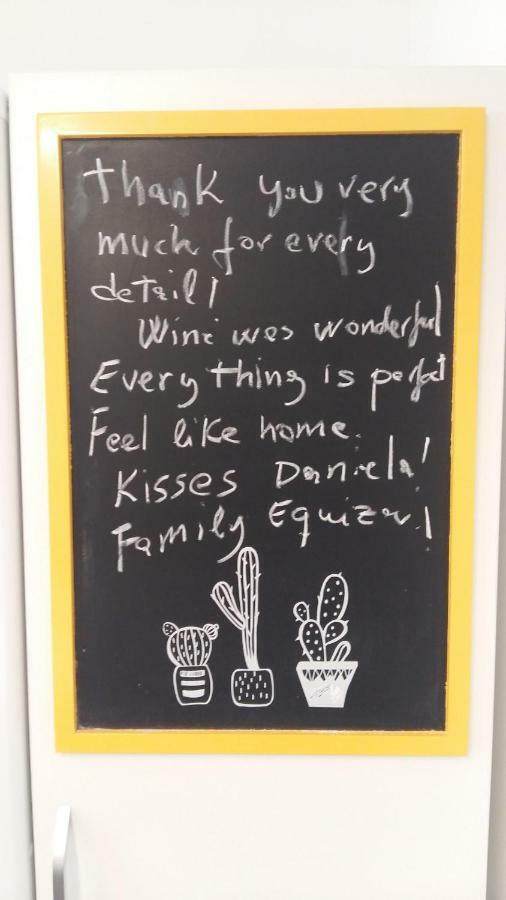 Thank you very
much for every
detail!
Wine was wonderful
Everything is perfect
Feel like home.
Kisses Daniela!
Family